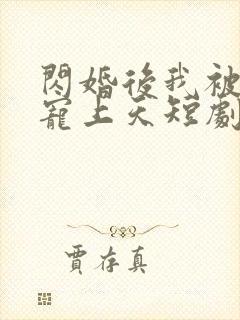 閃婚後我被
寵上天短劇
賈存真